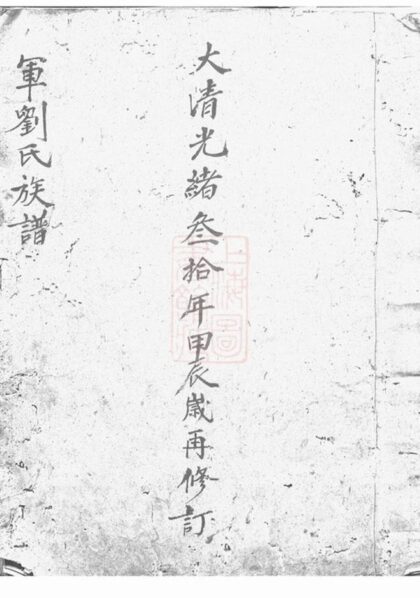 大清光緒叁拾年甲辰歲再修訂
軍劉氏族譜